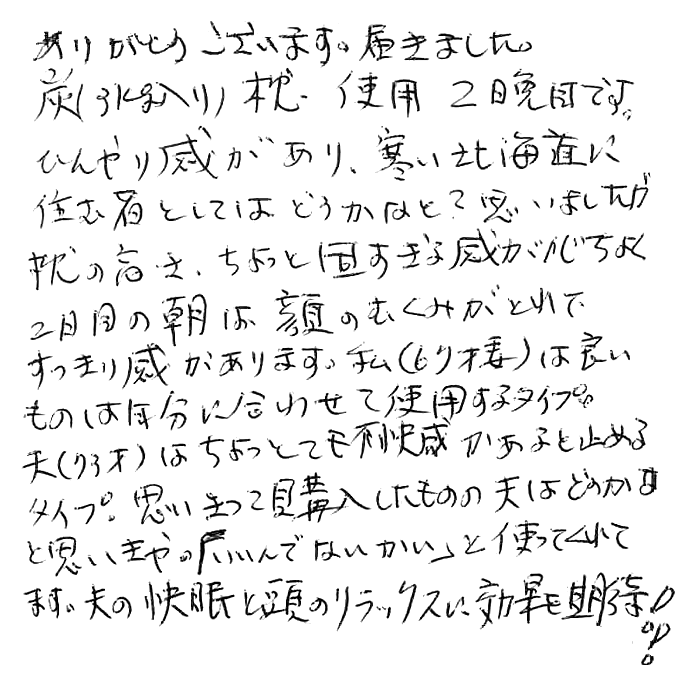 ありがとうございます。届きました。
炭(引出入り)枕、使用2日晩目です。
ひんやり感があり、寒い北海道に
住む者としてはどうかなと?思いましたが
枕の高さ、ちょっと固すぎる感が心ちよく
2日目の朝は顔のむくみがとれて
すっきり感があります。私(67才妻)は良い
ものは自分に合わせて使用するタイプ。
夫(73才)はちょっとでも不快感があると止める
タイプ。思いきって購入したものの夫はどうかな
と思いきや。「いいんでないかい」と使ってくれて
ます。夫の快眠と頭のリラックスに効果を期待!!